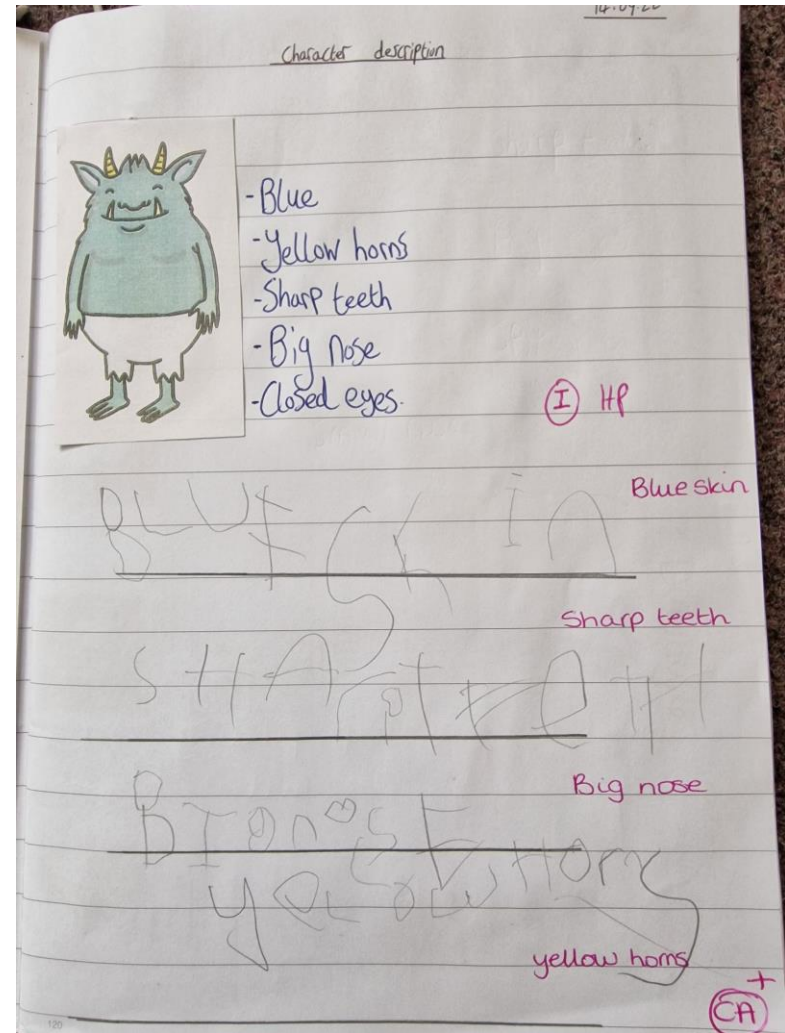 Character description
- Blue
- Yellow horns
- Sharp teeth
- Big nose
- Closed eyes.
I HP
Blue skin
BLUE SKIn
Sharp teeth
SHAr
Big nose
yellow horns
CA+
120